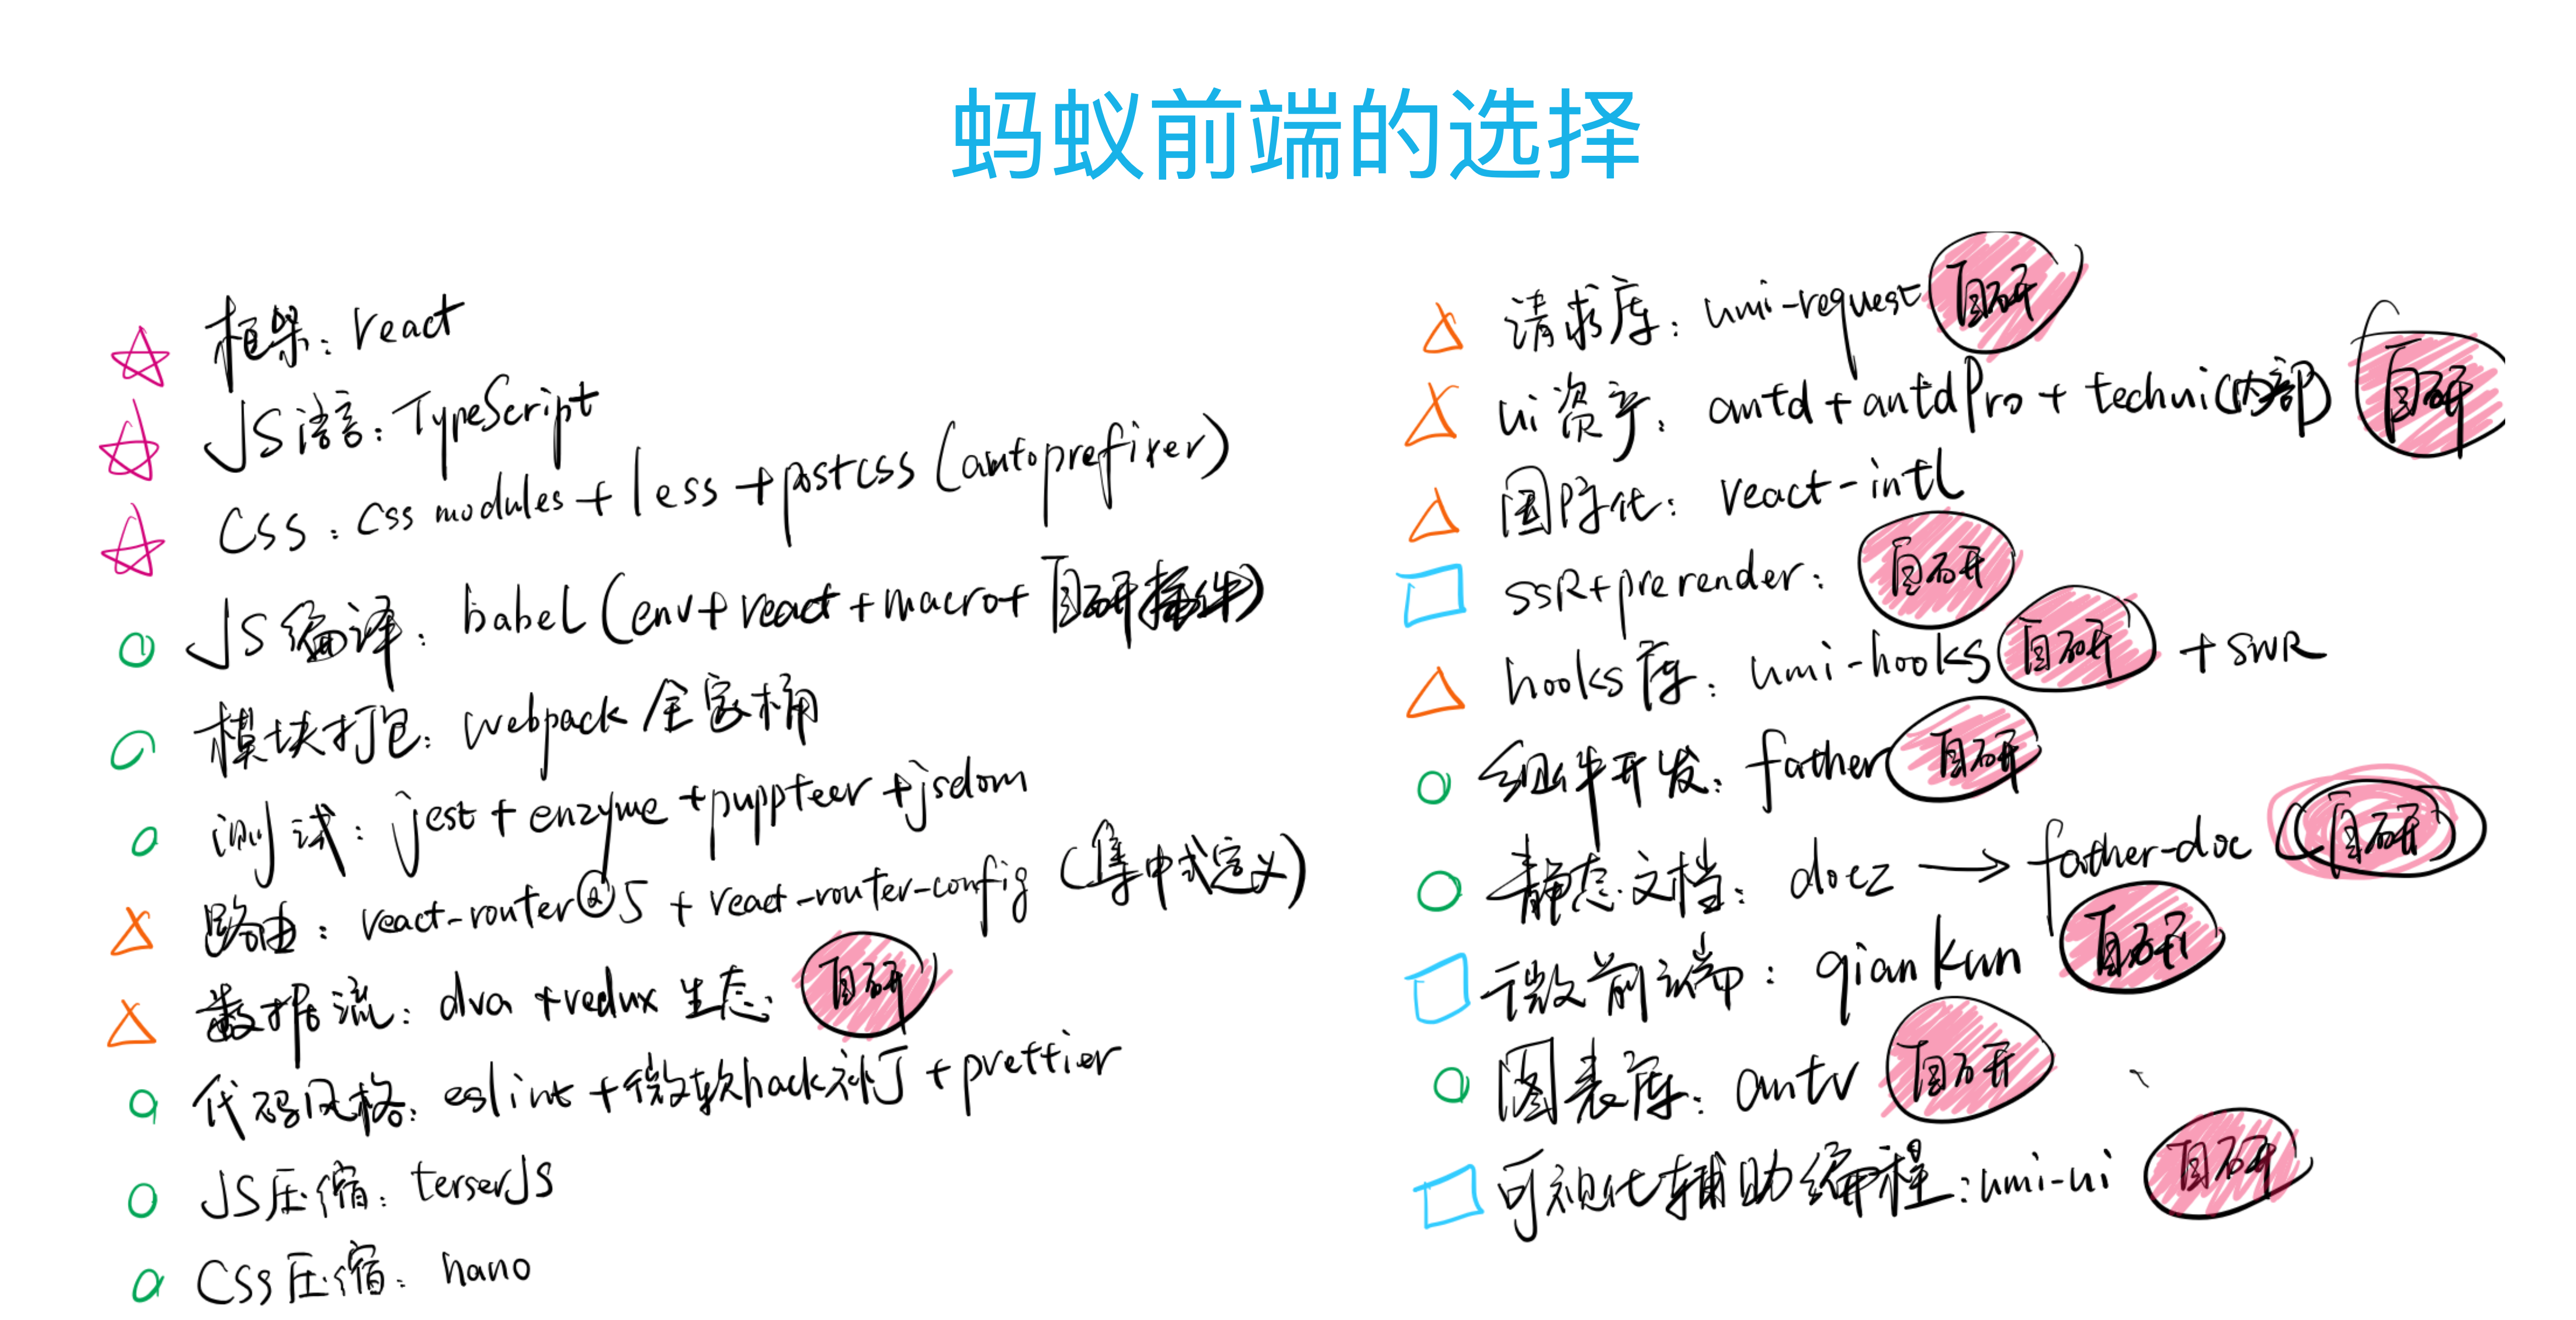 蚂蚁前端的选择
框架: react
JS语言: TypeScript
CSS: Css modules + less + postcss (autoprefixer)
JS编译: babel (env + react + macro + 自研插件)
模块打包: webpack 全家桶
测试: jest + enzyme + puppteer + jsdom
路由: react-router@5 + react-router-config (集中式定义)
数据流: dva + redux 生态. 自研
代码风格: eslint + 微软hack补丁 + prettier
JS压缩: terserJS
CSS压缩: nano
请求库: umi-request 自研
ui资产: antd + antdPro + techui(内部) 自研
国际化: react-intl
SSR+prerender: 自研
hooks库: umi-hooks 自研 + SWR
组件开发: father 自研
静态文档: docz → father-doc (自研)
微前端: qiankun 自研
图表库: antv 自研
可视化辅助编程: umi-ui 自研